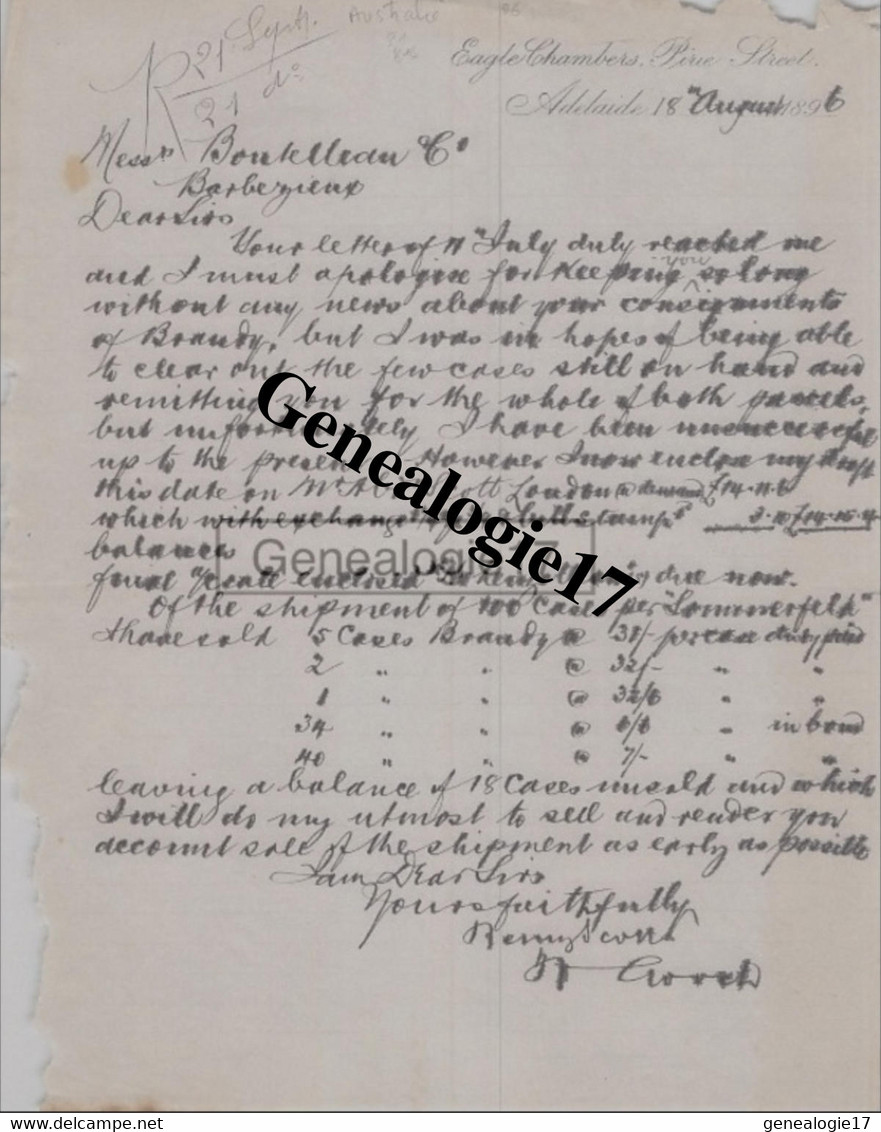 Australie
R 21 Sept.
21 do
Eagle Chambers. Pirie Street.
Adelaide 18th August 1896
Messrs Boutelleau & Co
Barbezieux
Dear Sirs
Your letter of 11 July duly reached me
and I must apologise for keeping you so long
without any news about your consignments
of Brandy, but I was in hopes of being able
to clear out the few cases still on hand and
remitting you for the whole of both parcels,
but unfortunately I have been unsuccessful
up to the present. However I now enclose my draft
this date on London on demand £14.11.6
which with exchange stamps 3.10 £14.15.4
balances
final enclosed due now.
Of the shipment of 100 Cases per "Sommerfeld"
I have sold 5 Cases Brandy @ 31/- per case duty paid
2 " " @ 32/- " "
1 " " @ 32/6 " "
34 " " @ 6/6 " in bond
40 " " @ 7/- " "
leaving a balance of 18 Cases unsold and which
I will do my utmost to sell and render you
account sale of the shipment as early as possible
I am Dear Sirs
Yours faithfully
Genealogie17
Genealogie17
delcampe.net
genealogie17